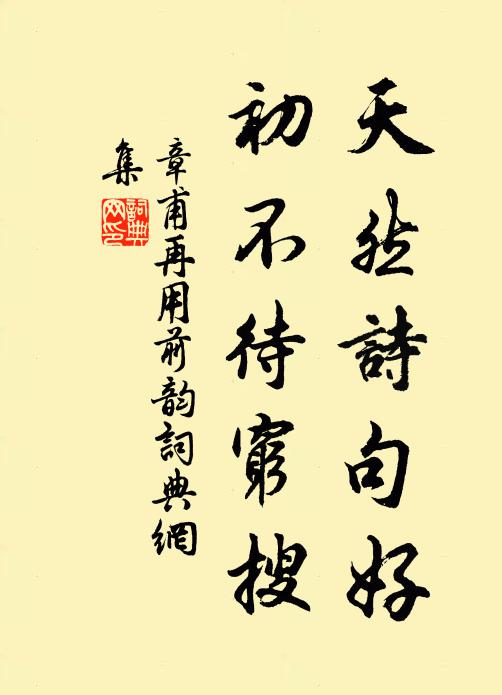 天然詩句好
初不待窮搜
章甫再用前韵詞典網
集
詞典
网印